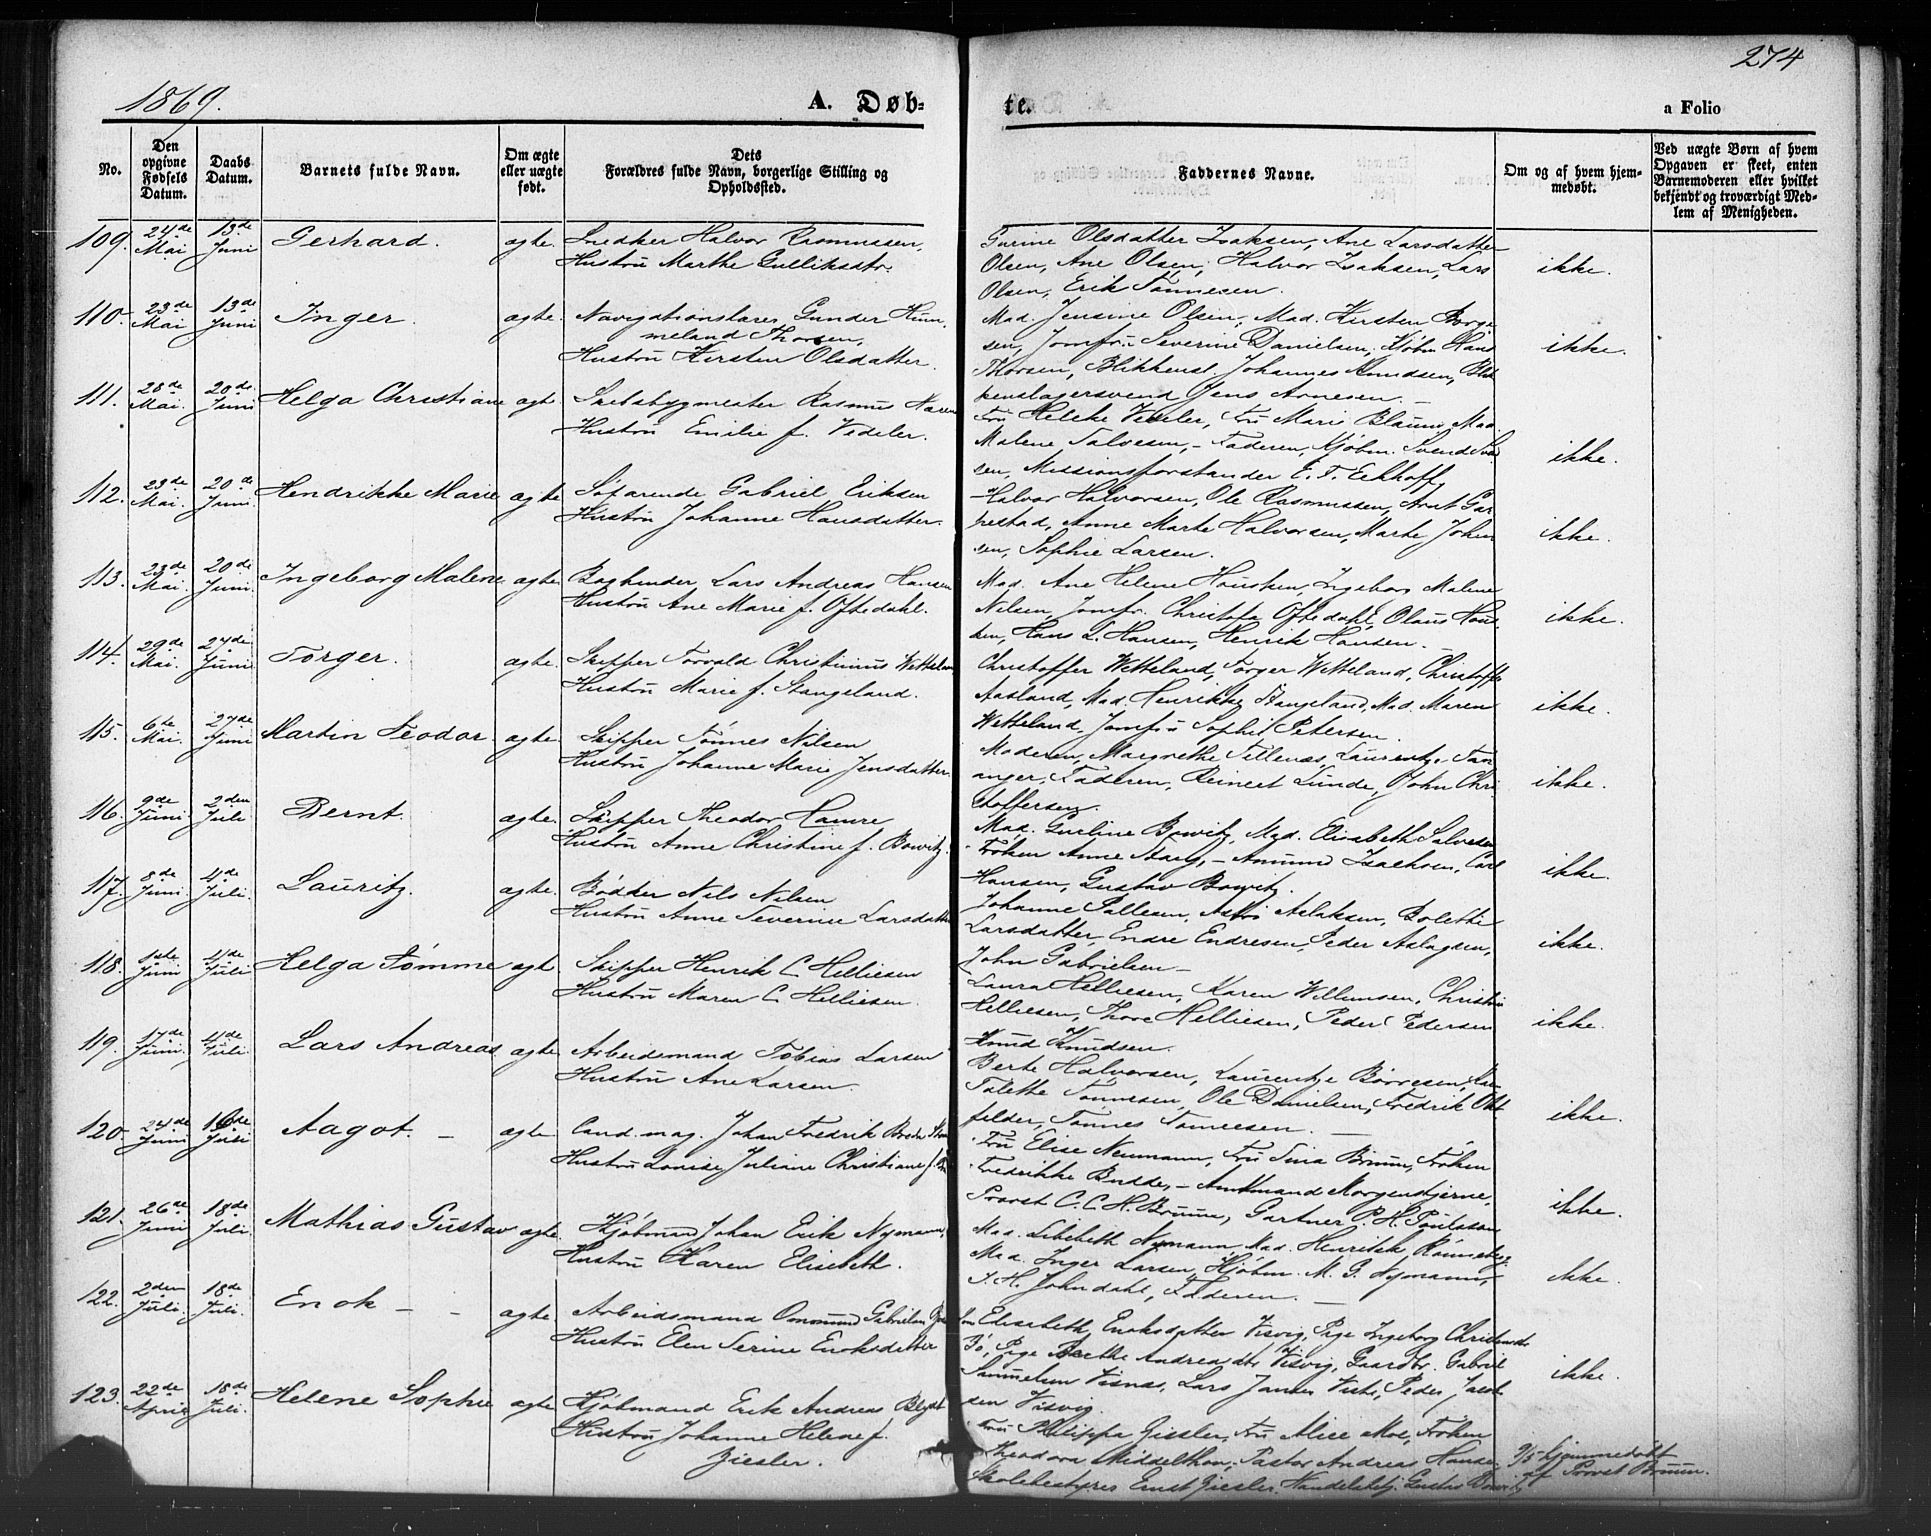 1869.
A. Døb-
te.
274
a Folio
No.
Den opgivne Fødsels Datum.
Daabs Datum.
Barnets fulde Navn.
Om ægte eller uægte født.
Dets Forældres fulde Navn, borgerlige Stilling og Opholdssted.
Faddernes Navne.
Om og af hvem hjemmedøbt.
Ved uægte Børn af hvem Opgaven er skeet, enten Barnemoderen eller hvilket bekjendt og troværdigt Medlem af Menigheden.
109. 24de Mai 13de Juni Gerhard. ægte. Snedker Halvor Rasmussen,
Hustru Marthe Gulliksdtr.
Gurine Olsdatter Isaksen, Ane Larsdatter
Olsen, Ane Olsen, Halvor Isaksen, Lars
Olsen, Erik Tønnesen.
ikke.
110. 23de Mai 13de Juni Inger. ægte. Navigationslærer Gunder Hum-
meland Thorsen,
Hustru Kirsten Olsdatter.
Mad. Jensine Olsen, Mad. Kirsten Børge-
sen, Jomfru Severine Danielsen, Kjøbm. Hans
Thorsen, Blikkensl. Johannes Amundsen, Blik-
kenslagersvend Jens Arnesen.
ikke.
111. 28de Mai. 20de Juni Helga Christiane ægte. Skibsbygmester Rasmus
Hustru Emilie f. Vedeler.
Fru Helche Vedeler, Fru Marie Blaum, Mad.
Malene Salvesen, - Faderen, Kjøbm. Svend
sen, Missionsforstander E. F. Eckhoff.
ikke.
112. 23de Mai. 20de Juni Hendrikke Marie ægte Søfarende Gabriel Eriksen
Hustru Johanne Hansdatter.
Halvor Halvorsen, Ole Rasmussen, Arnt Gar-
pestad, Anne Marte Halvorsen, Marte Johan-
sen, Sophie Larsen.
ikke.
113. 23de Mai. 20de Juni. Ingeborg Malene ægte. Bogbinder Lars Andreas Hansen
Hustru Ane Marie f. Oftedahl.
Mad. Ane Helene Housken, Ingeborg Malene
Nilsen, Jomfr. Christofa Oftedahl, Olaus Hous-
ken, Hans L. Hansen, Henrik Hansen.
ikke.
114. 29de Mai. 27de Juni Torger. ægte. Skipper Torvald Christinius Witteland
Hustru Marie f. Stangeland.
Christoffer Witteland, Torger Witteland, Christoffer
Aasland, Mad. Henrikke Stangeland, Mad. Maren
Witteland, Jomfru Sophie Petersen.
ikke.
115. 6te Mai. 27de Juni Martin Teodor. ægte. Skipper Tønnes Nilsen
Hustru Johanne Marie Jensdatter.
Moderen, Margrethe Tillenæs, Laurentze Tan-
anger, Faderen, Reinert Lunde, John Chri-
stoffersen.
ikke.
116. 9de Juni 2den Juli Bernt. ægte. Skipper Theodor Hamre
Hustru Anne Christine f. Bowitz.
Mad. Gurline Bowitz, Mad. Elisabeth Salvesen,
Frøken Anne Stang, - Amund Isachsen, Carl
Hansen, Gustav Bowitz.
ikke.
117. 8de Juni. 4de Juli. Lauritz. ægte. Bødker Nils Nilsen
Hustru Anne Severine Larsdatter
Johanne Pallesen, Astri Aslaksen, Bolette
Larsdatter, Endre Endresen, Peder Aslagsen,
John Gabrielsen -
ikke.
118. 1ste Juni 4de Juli Helga Tomine ægte. Skipper Henrik C. Helliesen
Hustru Maren C. Helliesen.
Laura Helliesen, Karen Willumsen, Christine
Helliesen, Thore Helliesen, Peder Pedersen
Knud Knudsen.
ikke.
119. 17de Juni. 4de Juli. Lars Andreas ægte. Arbeidsmand Tobias Larsen
Hustru Ane Larsen.
Berte Halvorsen, Laurentze Børresen,
Talette Tønnesen, Ole Danielsen, Fredrik Old-
felder, Tønnes Tønnesen.
ikke.
120. 24de Juni 16de Juli Aagot. - ægte Cand. mag. Johan Fredrik Breda
Hustru Louise Juliane Christiane f.
Fru Elise Neumann, Fru Sina Bruun, Frøken
Fredrikke Budde, - Amtmand Morgenstjerne,
Provst C. C. H. Bruun, Gartner P. H. Poulsson
ikke.
121. 26de Juni 18de Juli. Mathias Gustav ægte. Kjøbmand Johan Erik Nymann,
Hustru Karen Elisebeth.
Mad. Lisebeth Nymann, Mad. Henrikke Rønneberg,
Mad. Inger Larsen, Kjøbm. M. G. Nymann,
T. H. Johndahl, Faderen.
ikke.
122. 2den Juli. 18de Juli. Enok - - ægte Arbeidsmand Ommund Gabrielsen
Hustru Elen Serine Enoksdatter
Elisebeth Enoksdatter Visvig, Pige Ingeborg Christensdtr
Bø, Pige Berthe Andreasdtr Visvig, Gaardbr. Gabriel
Samuelsen Visnæs, Lars Jansen Viste, Peder Jacob-
sen Visvig.
ikke.
123. 22de April 18de Juli. Helene Sophie ægte Kjøbmand Erik Andreas Blydt
Hustru Johanne Helene f.
Ziesler.
Fru Philippa Ziesler, Fru Alice Moe, Frøken
Theodora Middelthon, Pastor Andreas Hansen,
Skolebestyrer Ernst Ziesler, Handelsbetj. Gustav Bowitz
9/5 hjemmedøbt
af Provst Bruun.